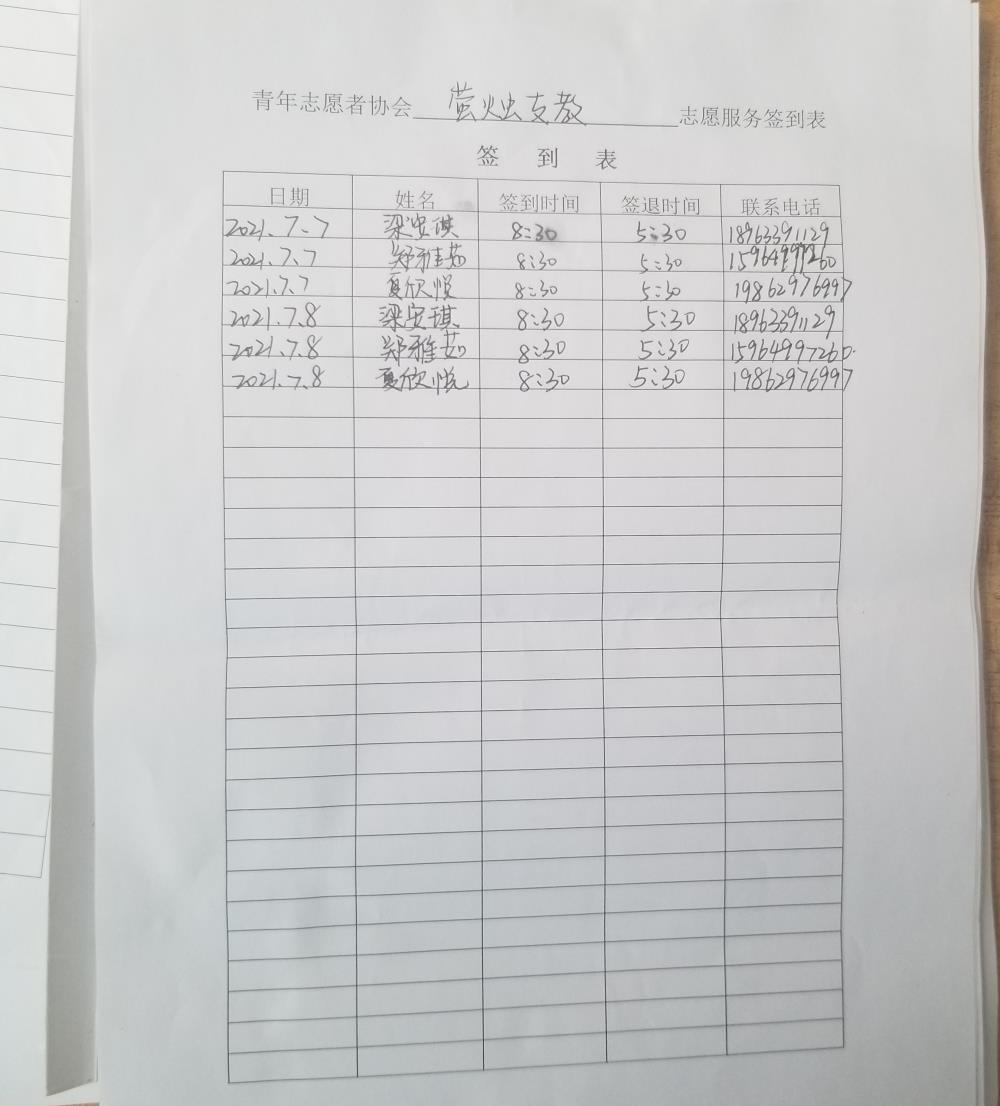 青年志愿者协会 萤烛支教 志愿服务签到表
签 到 表
日期 姓名 签到时间 签退时间 联系电话
2021.7.7 梁安琪 8:30 5:30 18963391129
2021.7.7 郑雅茹 8:30 5:30 15964997260
2021.7.7 夏欣悦 8:30 5:30 19862976997
2021.7.8 梁安琪 8:30 5:30 18963391129
2021.7.8 郑雅茹 8:30 5:30 15964997260
2021.7.8 夏欣悦 8:30 5:30 19862976997